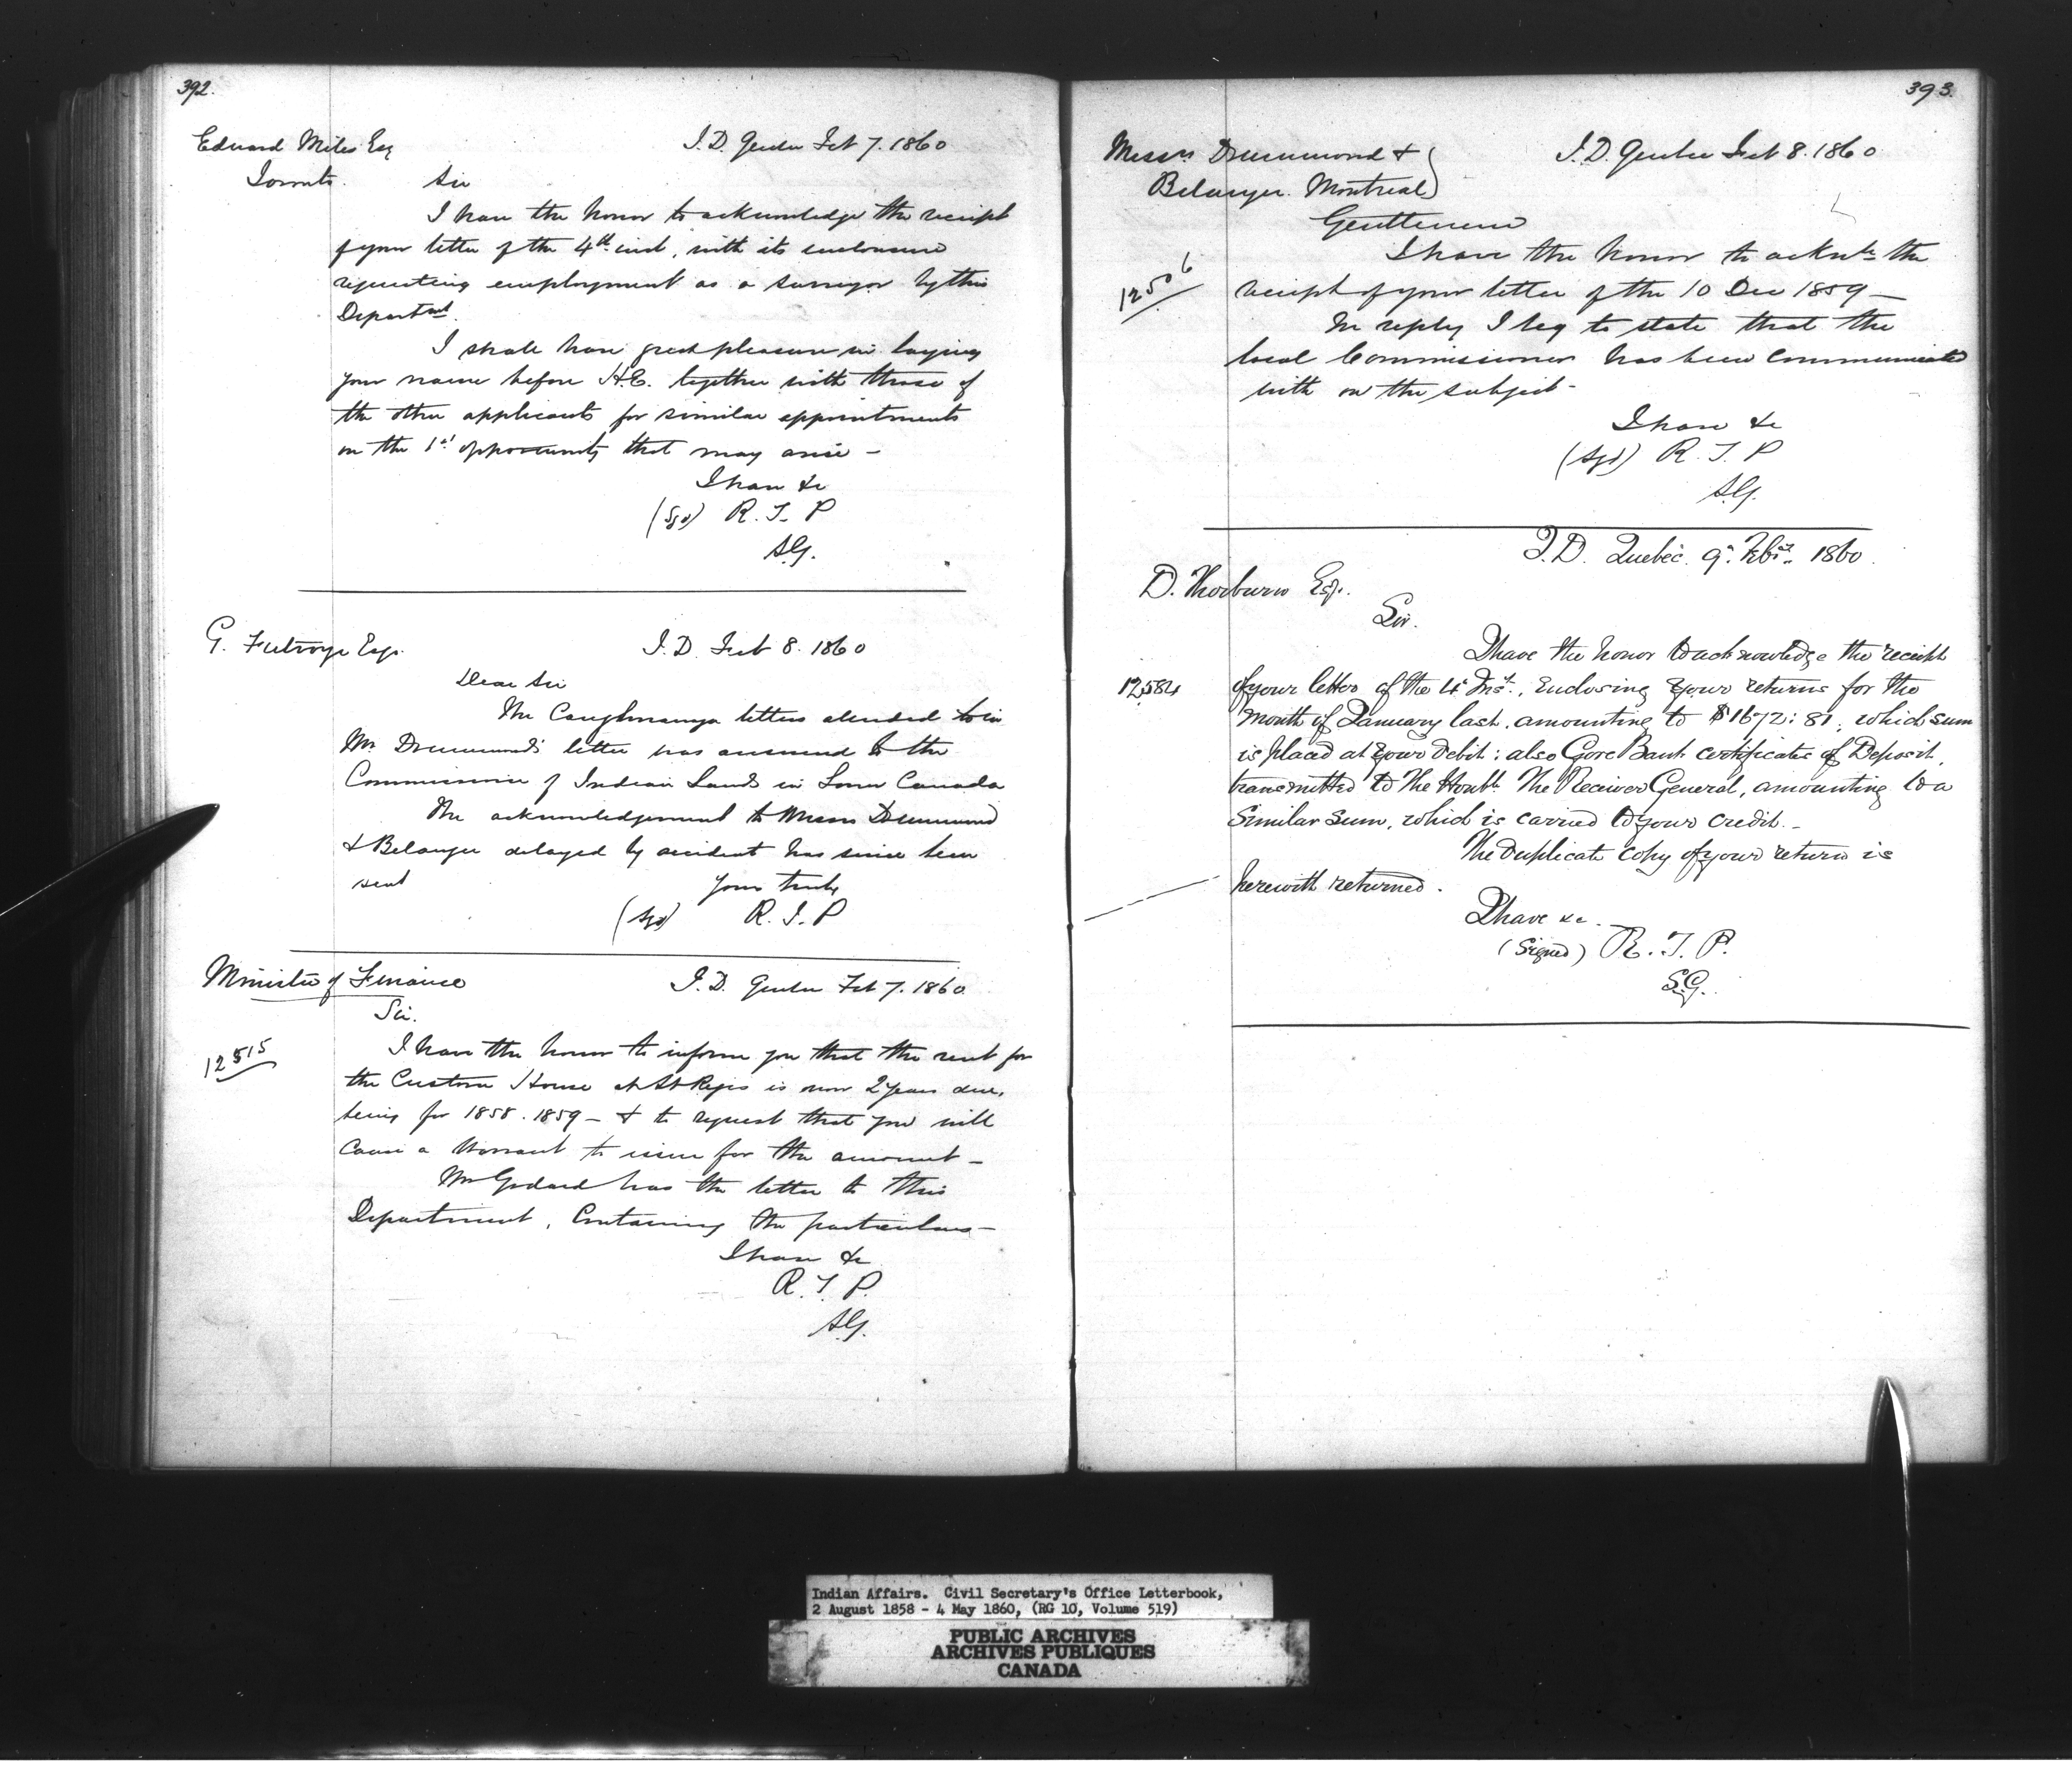 392.
Edward Miles Esq
Toronto.
I.D. Quebec Feb 7. 1860
Sir
I have the honor to acknowledge the receipt
of your letter of the 4th inst, with its enclosure
requesting employment as a surveyor by this
Departmt.
I shall have great pleasure in laying
your name before H.E. together with those of
the other applicants for similar appointments
on the 1st opportunity that may arise —
I have &c
(Sgd) R. T. P
S.G.
G. Futvoye Esqr.
I.D. Feb 8. 1860
Dear Sir
The Caughnawaga letters alluded to in
Mr. Drummond's letter was answered to the
Commissioner of Indian Lands in Lower Canada
The acknowledgement to Messrs Drummond
& Belanger delayed by accident has since been
sent
Yours truly
(Sgd) R. T. P
Minister of Finance
I.D. Quebec Feb 7. 1860
Sir.
12515
I have the honor to inform you that the rent for
the Custom House at St Regis is now 2 years due,
being for 1858. 1859 — & to request that you will
cause a Warrant to issue for the amount —
Mr Godard has the letter to this
Department, containing the particulars —
I have &c
R. T. P.
S.G.
393.
Messrs Drummond &
Belanger. Montreal
I.D. Quebec Feb 8. 1860
Gentlemen
12506
I have the honor to acknle the
receipt of your letter of the 10 Dec 1859 —
In reply I beg to state that the
local Commissioner has been communicated
with on the subject —
I have &c
(Sgd) R. T. P
S.G.
I.D. Quebec. 9th Feby. 1860.
D. Thorburn Esqr.
Sir.
12,584
I have the honor to acknowledge the receipt
of your letter of the 4th Inst., enclosing your returns for the
month of January last, amounting to $1672:81, which sum
is placed at your debit: also Gore Bank certificates of Deposit,
transmitted to the Honble. The Receiver General, amounting to a
similar sum, which is carried to your credit. —
The duplicate copy of your return is
herewith returned.
I have &c.
(Signed) R. T. P.
S.G.
Indian Affairs. Civil Secretary's Office Letterbook,
2 August 1858 - 4 May 1860, (RG 10, Volume 519)
PUBLIC ARCHIVES
ARCHIVES PUBLIQUES
CANADA